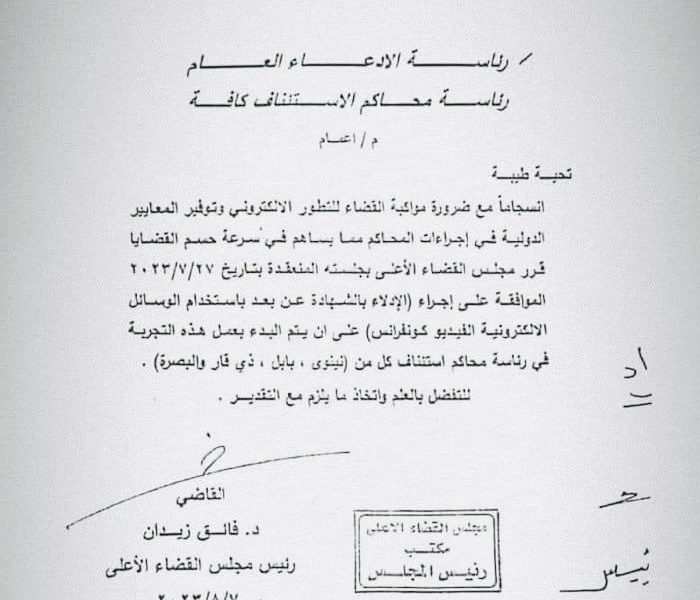 / رئاسة الادعاء العام
رئاسة محاكم الاستئناف كافة
م / اعمام
تحية طيبة
انسجاماً مع ضرورة مواكبة القضاء للتطور الالكتروني وتوفير المعايير
الدولية في إجراءات المحاكم مما يساهم في سرعة حسم القضايا
قرر مجلس القضاء الأعلى بجلسته المنعقدة بتاريخ ٢٠٢٣/٧/٢٧
الموافقة على إجراء (الإدلاء بالشهادة عن بعد باستخدام الوسائل
الالكترونية الفيديو كونفرانس) على ان يتم البدء بعمل هذه التجربة
في رئاسة محاكم استئناف كل من (نينوى ، بابل ، ذي قار والبصرة) .
للتفضل بالعلم واتخاذ ما يلزم مع التقدير .
القاضي
د. فائق زيدان
رئيس مجلس القضاء الأعلى
٢٠٢٣/٨/٧
مجلس القضاء الاعلى
مكتب
رئيس المجلس